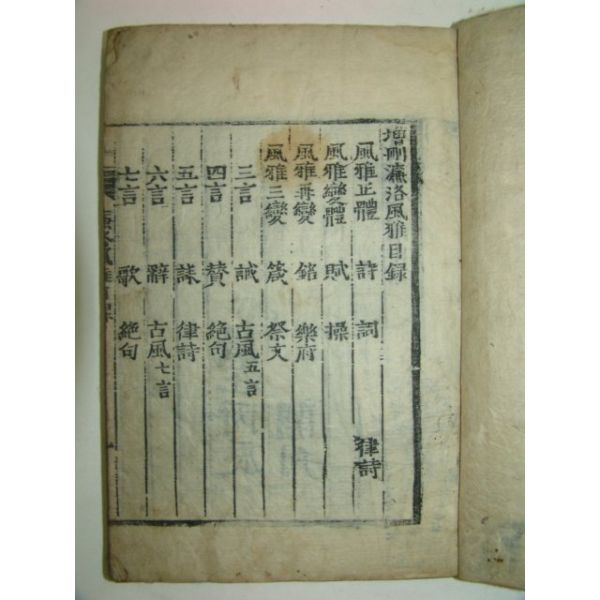 增刪濂洛風雅目錄
風雅正體 詩 詞 律詩
風雅變體 賦 操
風雅再變 銘 樂府
風雅三變 箴 祭文
三言 誡 古風五言
四言 贊 絕句
五言 誄 律詩
六言 辭 古風七言
七言 歌 絕句